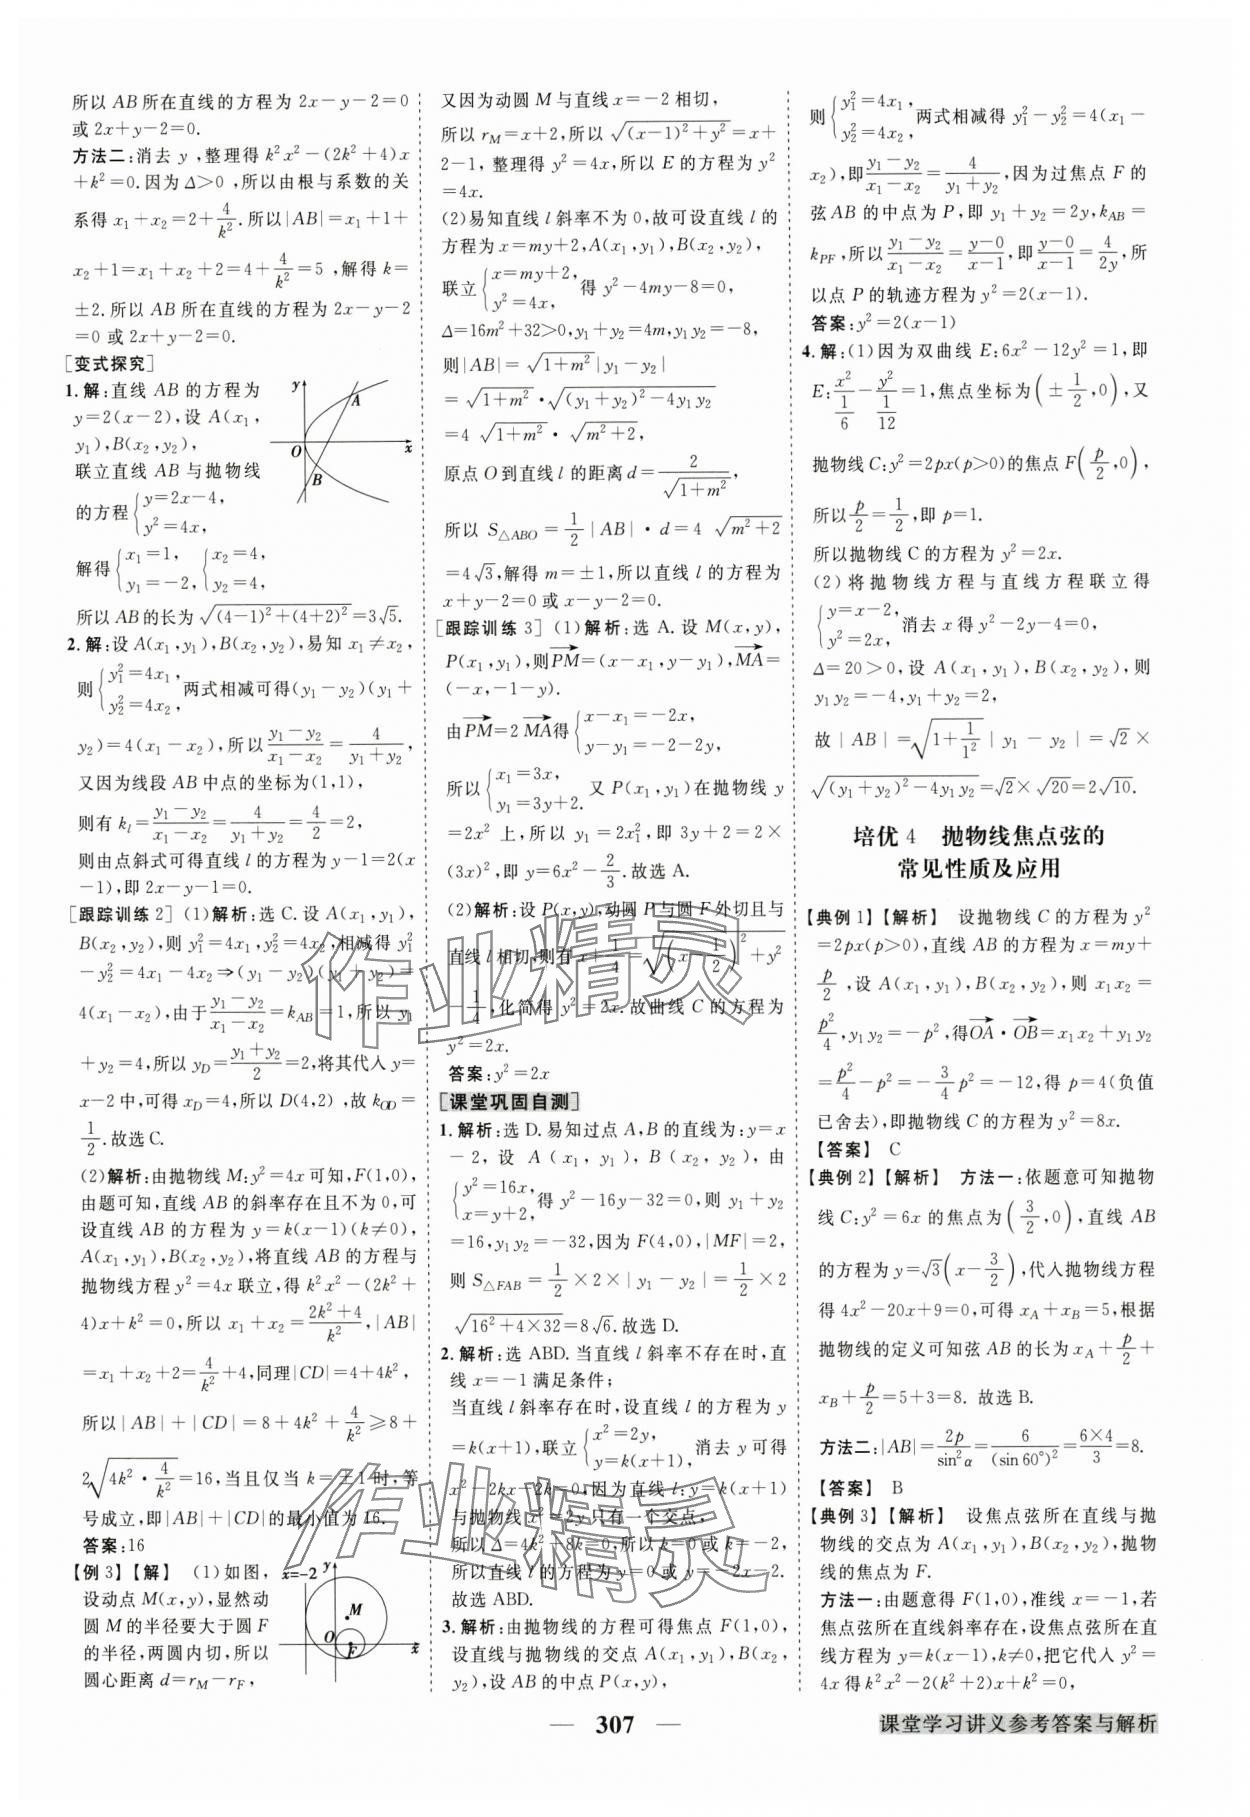 所以 AB 所在直线的方程为 2x-y-2=0
或 2x+y-2=0.
方法二:消去 y ,整理得 k²x²-(2k²+4)x
+k²=0.因为 Δ>0 ,所以由根与系数的关
系得 x₁+x₂=2+4/k².所以|AB|=x₁+1+
x₂+1=x₁+x₂+2=4+4/k²=5 ,解得 k=
±2.所以 AB 所在直线的方程为 2x-y-2
=0 或 2x+y-2=0.
[变式探究]
1.解:直线 AB 的方程为
y=2(x-2),设 A(x₁,
y₁),B(x₂,y₂),
联立直线 AB 与抛物线
的方程{y=2x-4, y²=4x,
解得{x₁=1, y₁=-2, {x₂=4, y₂=4,
y
A
O
x
B
所以 AB 的长为 √((4-1)²+(4+2)²)=3√5.
2.解:设 A(x₁,y₁),B(x₂,y₂),易知 x₁≠x₂,
则{y₁²=4x₁, y₂²=4x₂, 两式相减可得(y₁-y₂)(y₁+
y₂)=4(x₁-x₂),所以(y₁-y₂)/(x₁-x₂)=4/(y₁+y₂),
又因为线段 AB 中点的坐标为(1,1),
则有 kₗ=(y₁-y₂)/(x₁-x₂)=4/(y₁+y₂)=4/2=2,
则由点斜式可得直线 l 的方程为 y-1=2(x
-1),即 2x-y-1=0.
[跟踪训练 2] (1)解析:选 C.设 A(x₁,y₁),
B(x₂,y₂),则 y₁²=4x₁,y₂²=4x₂,相减得 y₁²
-y₂²=4x₁-4x₂⇒(y₁-y₂)(y₁+y₂)=
4(x₁-x₂),由于(y₁-y₂)/(x₁-x₂)=k_AB=1,所以 y₁
+y₂=4,所以 y_D=(y₁+y₂)/2=2,将其代入 y=
x-2 中,可得 x_D=4,所以 D(4,2),故 k_OD=
1/2.故选 C.
(2)解析:由抛物线 M:y²=4x 可知,F(1,0),
由题可知,直线 AB 的斜率存在且不为 0,可
设直线 AB 的方程为 y=k(x-1)(k≠0),
A(x₁,y₁),B(x₂,y₂),将直线 AB 的方程与
抛物线方程 y²=4x 联立,得 k²x²-(2k²+
4)x+k²=0,所以 x₁+x₂=(2k²+4)/k²,|AB|
=x₁+x₂+2=4/k²+4,同理|CD|=4+4k²,
所以|AB|+|CD|=8+4k²+4/k²≥8+
2√(4k²·4/k²)=16,当且仅当 k=±1 时,等
号成立,即|AB|+|CD|的最小值为 16.
答案:16
[例 3][解] (1)如图,
设动点 M(x,y),显然动
圆 M 的半径要大于圆 F
的半径,两圆内切,所以
圆心距离 d=r_M-r_F,
x=-2
y
M
O
F
x
又因为动圆 M 与直线 x=-2 相切,
所以 r_M=x+2,所以 √((x-1)²+y²)=x+
2-1,整理得 y²=4x,所以 E 的方程为 y²
=4x.
(2)易知直线 l 斜率不为 0,故可设直线 l 的
方程为 x=my+2,A(x₁,y₁),B(x₂,y₂),
联立{x=my+2, y²=4x, 得 y²-4my-8=0,
Δ=16m²+32>0,y₁+y₂=4m,y₁y₂=-8,
则|AB|=√(1+m²)|y₁-y₂|
=√(1+m²)·√((y₁+y₂)²-4y₁y₂)
=4√(1+m²)·√(m²+2),
原点 O 到直线 l 的距离 d=2/√(1+m²),
所以 S△ABO=1/2|AB|·d=4√(m²+2)
=4√3,解得 m=±1,所以直线 l 的方程为
x+y-2=0 或 x-y-2=0.
[跟踪训练 3] (1)解析:选 A.设 M(x,y),
P(x₁,y₁),则PM→=(x-x₁,y-y₁),MA→=
(-x,-1-y).
由PM→=2MA→得{x-x₁=-2x, y-y₁=-2-2y,
所以{x₁=3x, y₁=3y+2. 又 P(x₁,y₁)在抛物线 y
=2x² 上,所以 y₁=2x₁²,即 3y+2=2×
(3x)²,即 y=6x²-2/3.故选 A.
(2)解析:设 P(x,y),动圆 P 与圆 F 外切且与
直线 l 相切,则有 x+1/4=√((x-1/2)²+y²)
-1/4,化简得 y²=2x.故曲线 C 的方程为
y²=2x.
答案:y²=2x
[课堂巩固自测]
1.解析:选 D.易知过点 A,B 的直线为:y=x
-2,设 A(x₁,y₁),B(x₂,y₂),由
{y²=16x, x=y+2, 得 y²-16y-32=0,则 y₁+y₂
=16,y₁y₂=-32,因为 F(4,0),|MF|=2,
则 S△FAB=1/2×2×|y₁-y₂|=1/2×2
√(16²+4×32)=8√6.故选 D.
2.解析:选 ABD.当直线 l 斜率不存在时,直
线 x=-1 满足条件;
当直线 l 斜率存在时,设直线 l 的方程为 y
=k(x+1),联立{x²=2y, y=k(x+1), 消去 y 可得
x²-2kx-2k=0,因为直线 l:y=k(x+1)
与抛物线 x²=2y 只有一个交点,
所以 Δ=4k²+8k=0,所以 k=0 或 k=-2,
所以直线 l 的方程为 y=0 或 y=-2x-2.
故选 ABD.
3.解析:由抛物线的方程可得焦点 F(1,0),
设直线与抛物线的交点 A(x₁,y₁),B(x₂,
y₂),设 AB 的中点 P(x,y),
则{y₁²=4x₁, y₂²=4x₂, 两式相减得 y₁²-y₂²=4(x₁-
x₂),即(y₁-y₂)/(x₁-x₂)=4/(y₁+y₂),因为过焦点 F 的
弦 AB 的中点为 P,即 y₁+y₂=2y,k_AB=
k_PF,所以(y₁-y₂)/(x₁-x₂)=(y-0)/(x-1),即(y-0)/(x-1)=4/2y,所
以点 P 的轨迹方程为 y²=2(x-1).
答案:y²=2(x-1)
4.解:(1)因为双曲线 E:6x²-12y²=1,即
E:x²/(1/6)-y²/(1/12)=1,焦点坐标为(±1/2,0),又
抛物线 C:y²=2px(p>0)的焦点 F(p/2,0),
所以p/2=1/2,即 p=1.
所以抛物线 C 的方程为 y²=2x.
(2)将抛物线方程与直线方程联立得
{y=x-2, y²=2x, 消去 x 得 y²-2y-4=0,
Δ=20>0,设 A(x₁,y₁),B(x₂,y₂),则
y₁y₂=-4,y₁+y₂=2,
故|AB|=√(1+1/1²)|y₁-y₂|=√2×
√((y₁+y₂)²-4y₁y₂)=√2×√20=2√10.
培优 4 抛物线焦点弦的
常见性质及应用
[典例 1][解析] 设抛物线 C 的方程为 y²
=2px(p>0),直线 AB 的方程为 x=my+
p/2,设 A(x₁,y₁),B(x₂,y₂),则 x₁x₂=
p²/4,y₁y₂=-p²,得OA→·OB→=x₁x₂+y₁y₂
=p²/4-p²=-3/4p²=-12,得 p=4(负值
已舍去),即抛物线 C 的方程为 y²=8x.
[答案] C
[典例 2][解析] 方法一:依题意可知抛物
线 C:y²=6x 的焦点为(3/2,0),直线 AB
的方程为 y=√3(x-3/2),代入抛物线方程
得 4x²-20x+9=0,可得 x_A+x_B=5,根据
抛物线的定义可知弦 AB 的长为 x_A+p/2+
x_B+p/2=5+3=8.故选 B.
方法二:|AB|=2p/sin²α=6/(sin 60°)²=(6×4)/3=8.
[答案] B
[典例 3][解析] 设焦点弦所在直线与抛
物线的交点为 A(x₁,y₁),B(x₂,y₂),抛物
线的焦点为 F.
方法一:由题意得 F(1,0),准线 x=-1,若
焦点弦所在直线斜率存在,设焦点弦所在直
线方程为 y=k(x-1),k≠0,把它代入 y²=
4x 得 k²x²-2(k²+2)x+k²=0,
307
课堂学习讲义参考答案与解析
作业精灵
作业精灵